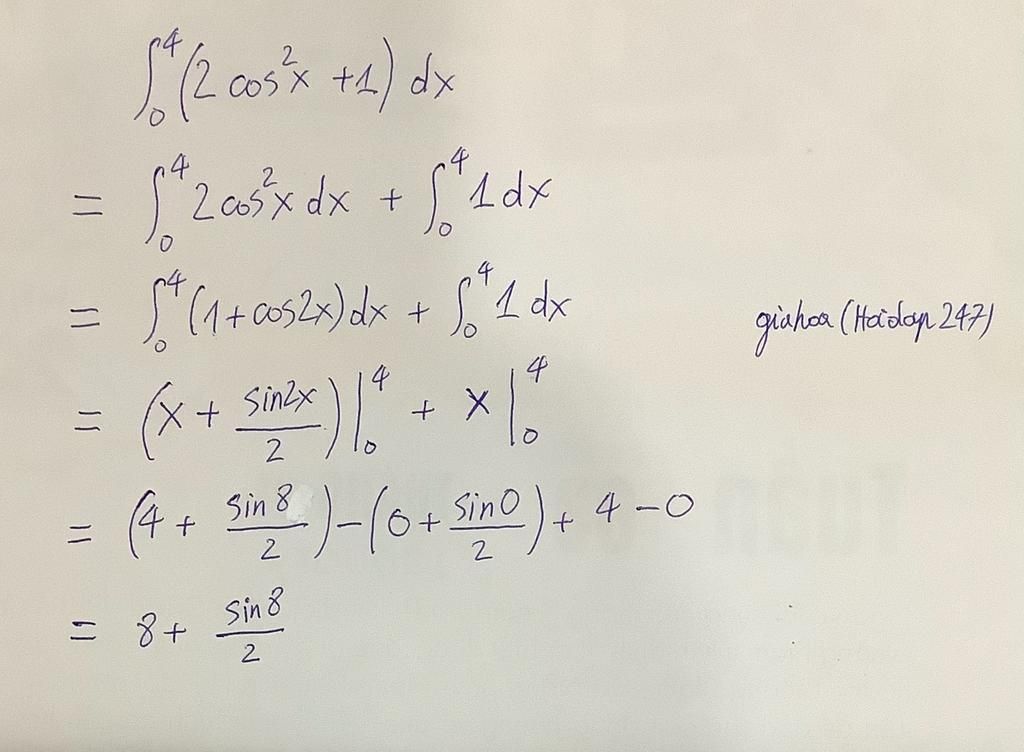 ∫₀⁴ (2 cos²x + 1) dx
= ∫₀⁴ 2 cos²x dx + ∫₀⁴ 1 dx
= ∫₀⁴ (1 + cos2x) dx + ∫₀⁴ 1 dx
giahoa (Hoidap 247)
= (x + sin2x/2)|₀⁴ + x|₀⁴
= (4 + sin8/2) - (0 + sin0/2) + 4 - 0
= 8 + sin8/2